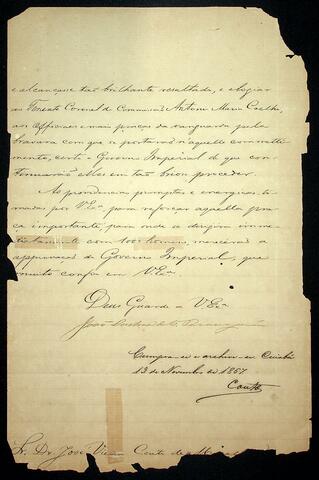 e alcançasse tão brilhante resultado, e elogiar
ao Tenente Coronel de Commissão Antonio Maria Coelho,
aos Officiaes e mais praças da vanguarda pela
bravura com que se portarão n'aquelle commetti-
mento, certo o Governo Imperial de que con-
tinuarão elles em tão bom proceder.
As providencias promptas e energicas to-
madas por V. Exª para reforçar aquella pra-
ça importante, para onde se dirigia imme-
diatamente com 1000 homens, merecerão a
approvação do Governo Imperial, que
muito confia em V. Exª
Deus Guarde a V. Exª
João
Cumpra-se e archive-se Cuiabá
13 de Novembro de 1867
Couto
Sr. Dr. José Vieira Couto de